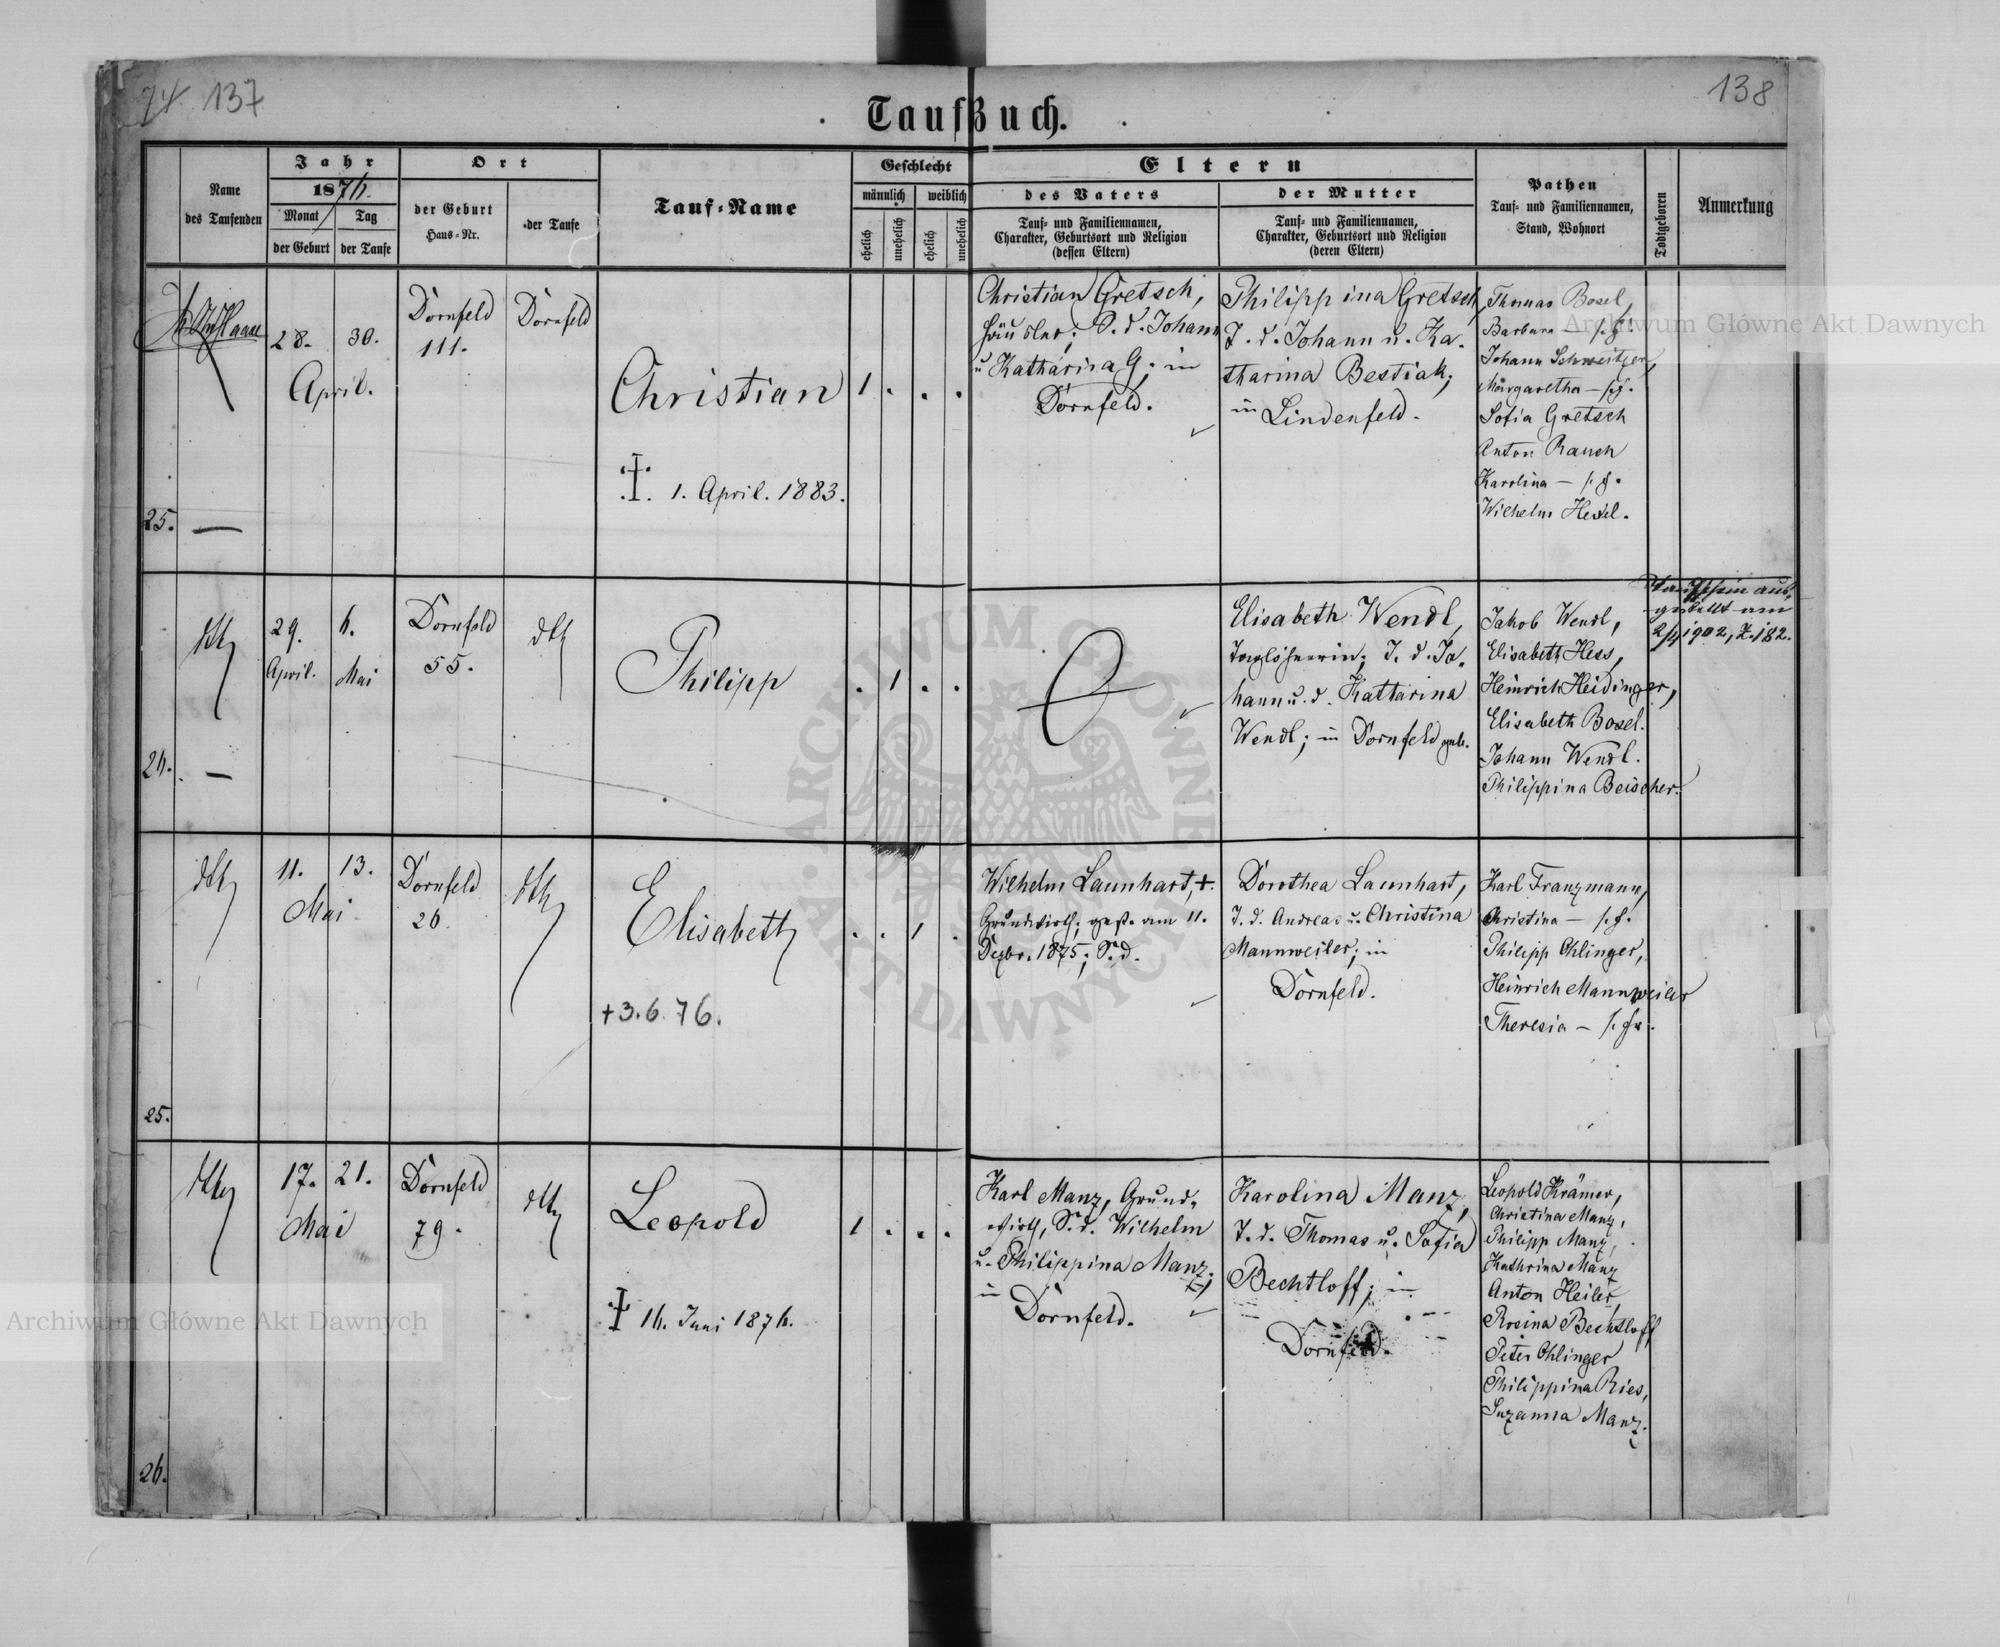 74 137
138
Taufbuch.
Name
des Taufenden
Jahr
1876.
Monat
der Geburt
Tag
der Taufe
Ort
der Geburt
Haus-Nr.
der Taufe
Tauf-Name
Geschlecht
männlich
weiblich
ehelich
unehelich
ehelich
unehelich
Eltern
des Vaters
Tauf- und Familiennamen,
Charakter, Geburtsort und Religion
(dessen Eltern)
der Mutter
Tauf- und Familiennamen,
Charakter, Geburtsort und Religion
(deren Eltern)
Pathen
Tauf- und Familiennamen,
Stand, Wohnort
Todtgeboren
Anmerkung
25.
Haase
28. 30.
April.
Dornfeld
111.
Dornfeld
Christian
1 . . .
1. April. 1883.
Christian Gretsch,
Häusler; S. d. Johann
u Katharina G. in
Dornfeld.
Philippina Gretsch,
T. d. Johann u. Ka-
tharina Bestiak;
in Lindenfeld.
Thomas Bosel,
Barbara — s. g.
Johann Schweitzer,
Margaretha — s. g.
Sofia Gretsch
Anton Rauch
Karolina — s. g.
Wilhelm Hexel.
26.
dtto
29. 6.
April. Mai
Dornfeld
55.
dtto
Philipp
. 1 . .
Elisabeth Wendl,
Taglöhnerin; T. d. Jo-
hann u. d. Kattarina
Wendl; in Dornfeld geb.
Jakob Wendl,
Elisabeth Hess,
Heinrich Heidinger,
Elisabeth Bosel.
Johann Wendl.
Philippina Beischer.
Taufschein aus-
gestellt am
2/4 1902, Z. 182.
25.
dtto
11. 13.
Mai
Dornfeld
20.
dtto
Elisabeth
. . 1 .
+ 3. 6. 76.
Wilhelm Launhart, +.
Grundwirth; gest. am 11.
Dezbr. 1875; S. d.
Dorothea Launhart,
T. d. Andreas u. Christina
Mannweiler; in
Dornfeld.
Karl Franzmann,
Christina — s. g.
Philipp Ohlinger,
Heinrich Mannweiler
Theresia — s. g.
26.
dtto
17. 21.
Mai
Dornfeld
79.
dtto
Leopold
1 . . .
16. Juni 1876.
Karl Manz, Grund-
wirth, S. d. Wilhelm
u. Philippina Manz.
in
Dornfeld.
Karolina Manz,
T. d. Thomas u. Sofia
Bechtloff; in
Dornfeld.
Leopold Krämer,
Christina Manz,
Philipp Manz,
Kathrina Manz
Anton Heiler,
Rosina Bechtloff
Peter Ohlinger
Philippina Ries,
Suzanna Manz.
Archiwum Główne Akt Dawnych
ARCHIWUM GŁÓWNE AKT DAWNYCH
Archiwum Główne Akt Dawnych